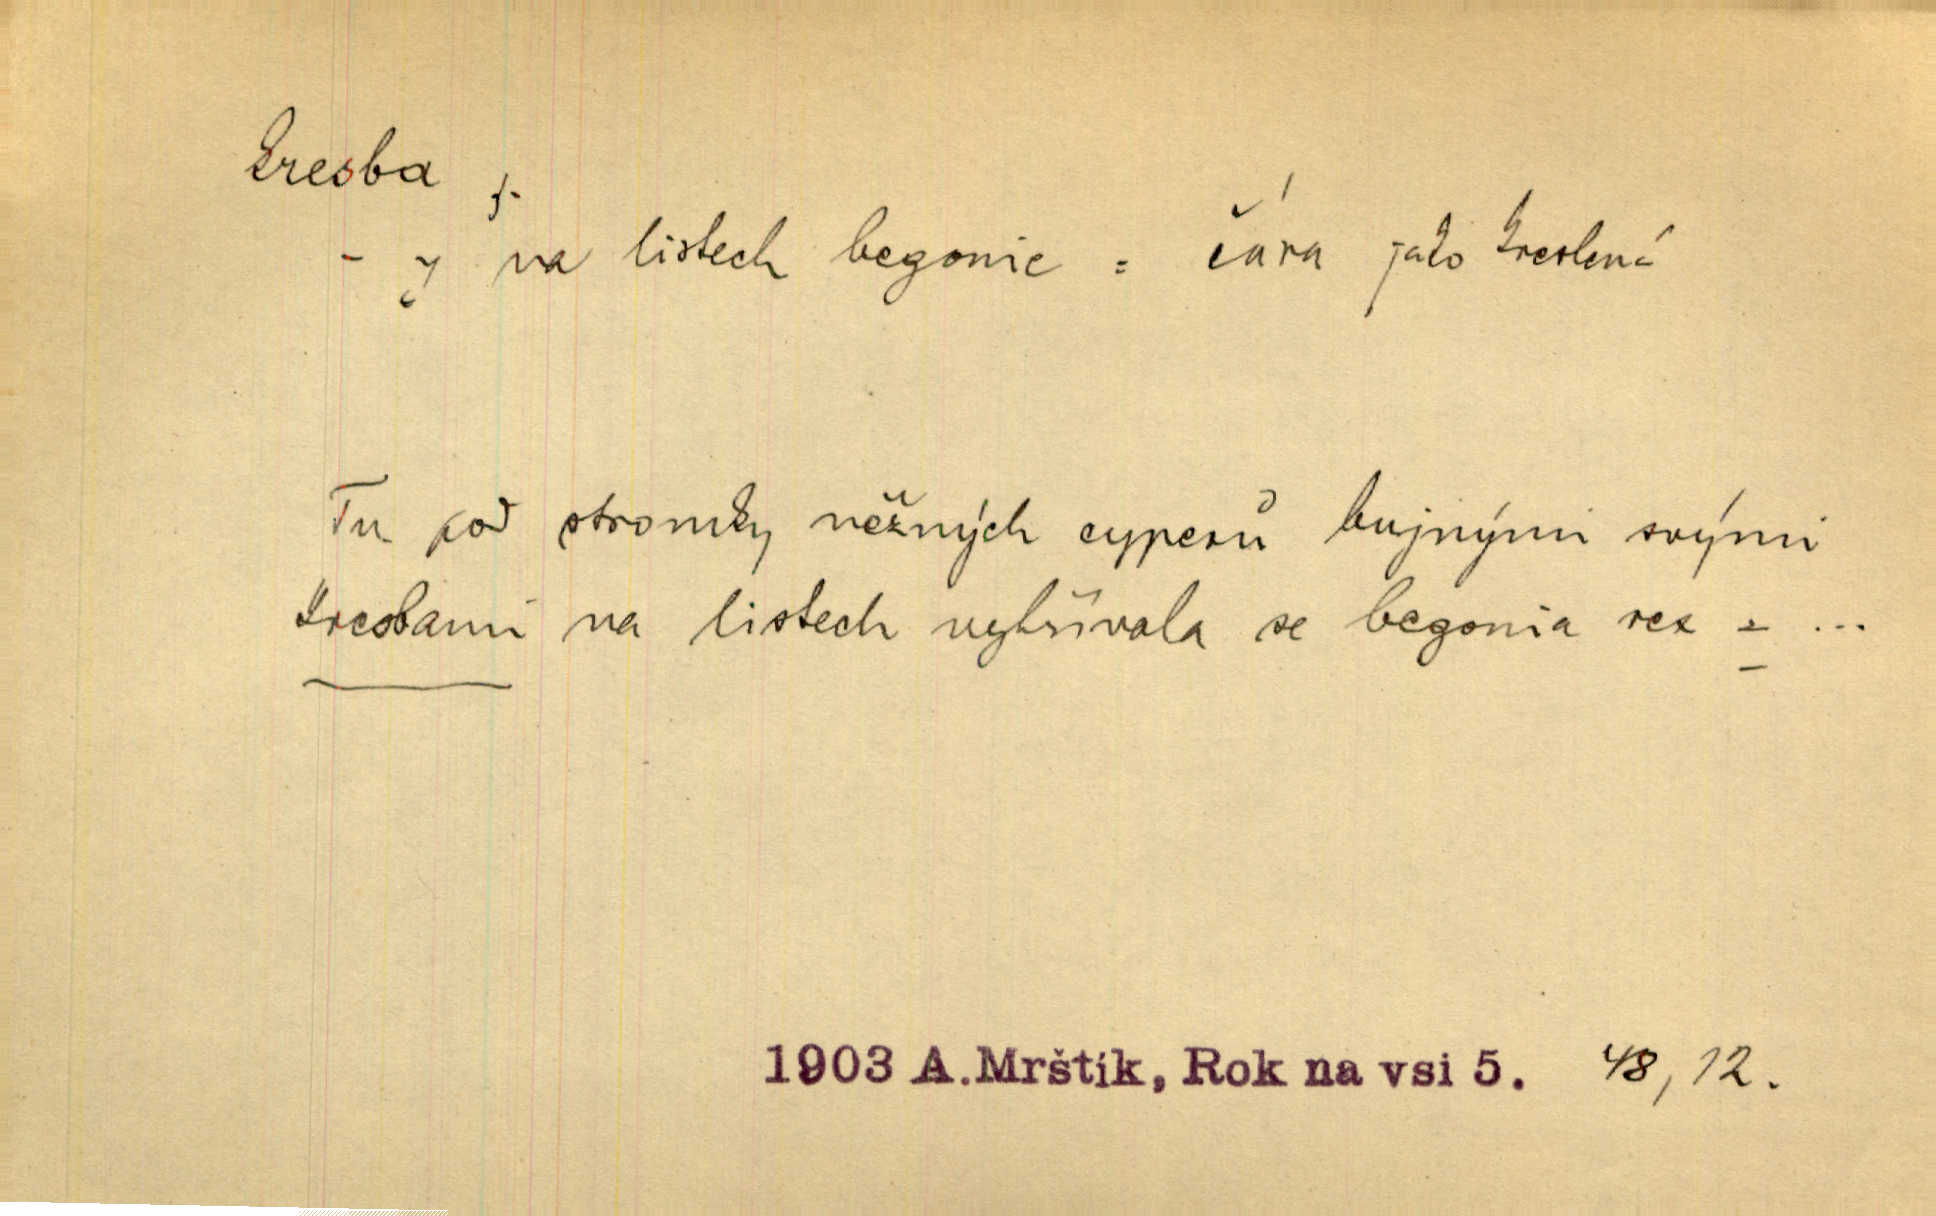 kresba f.
- y na listech begonie = čára jako kreslená
Tu pod stromky něžných cyperů bujnými svými
kresbami na listech vykřivala se begonia rex = ...
1903 A.Mrštík, Rok na vsi 5. 48, 12.